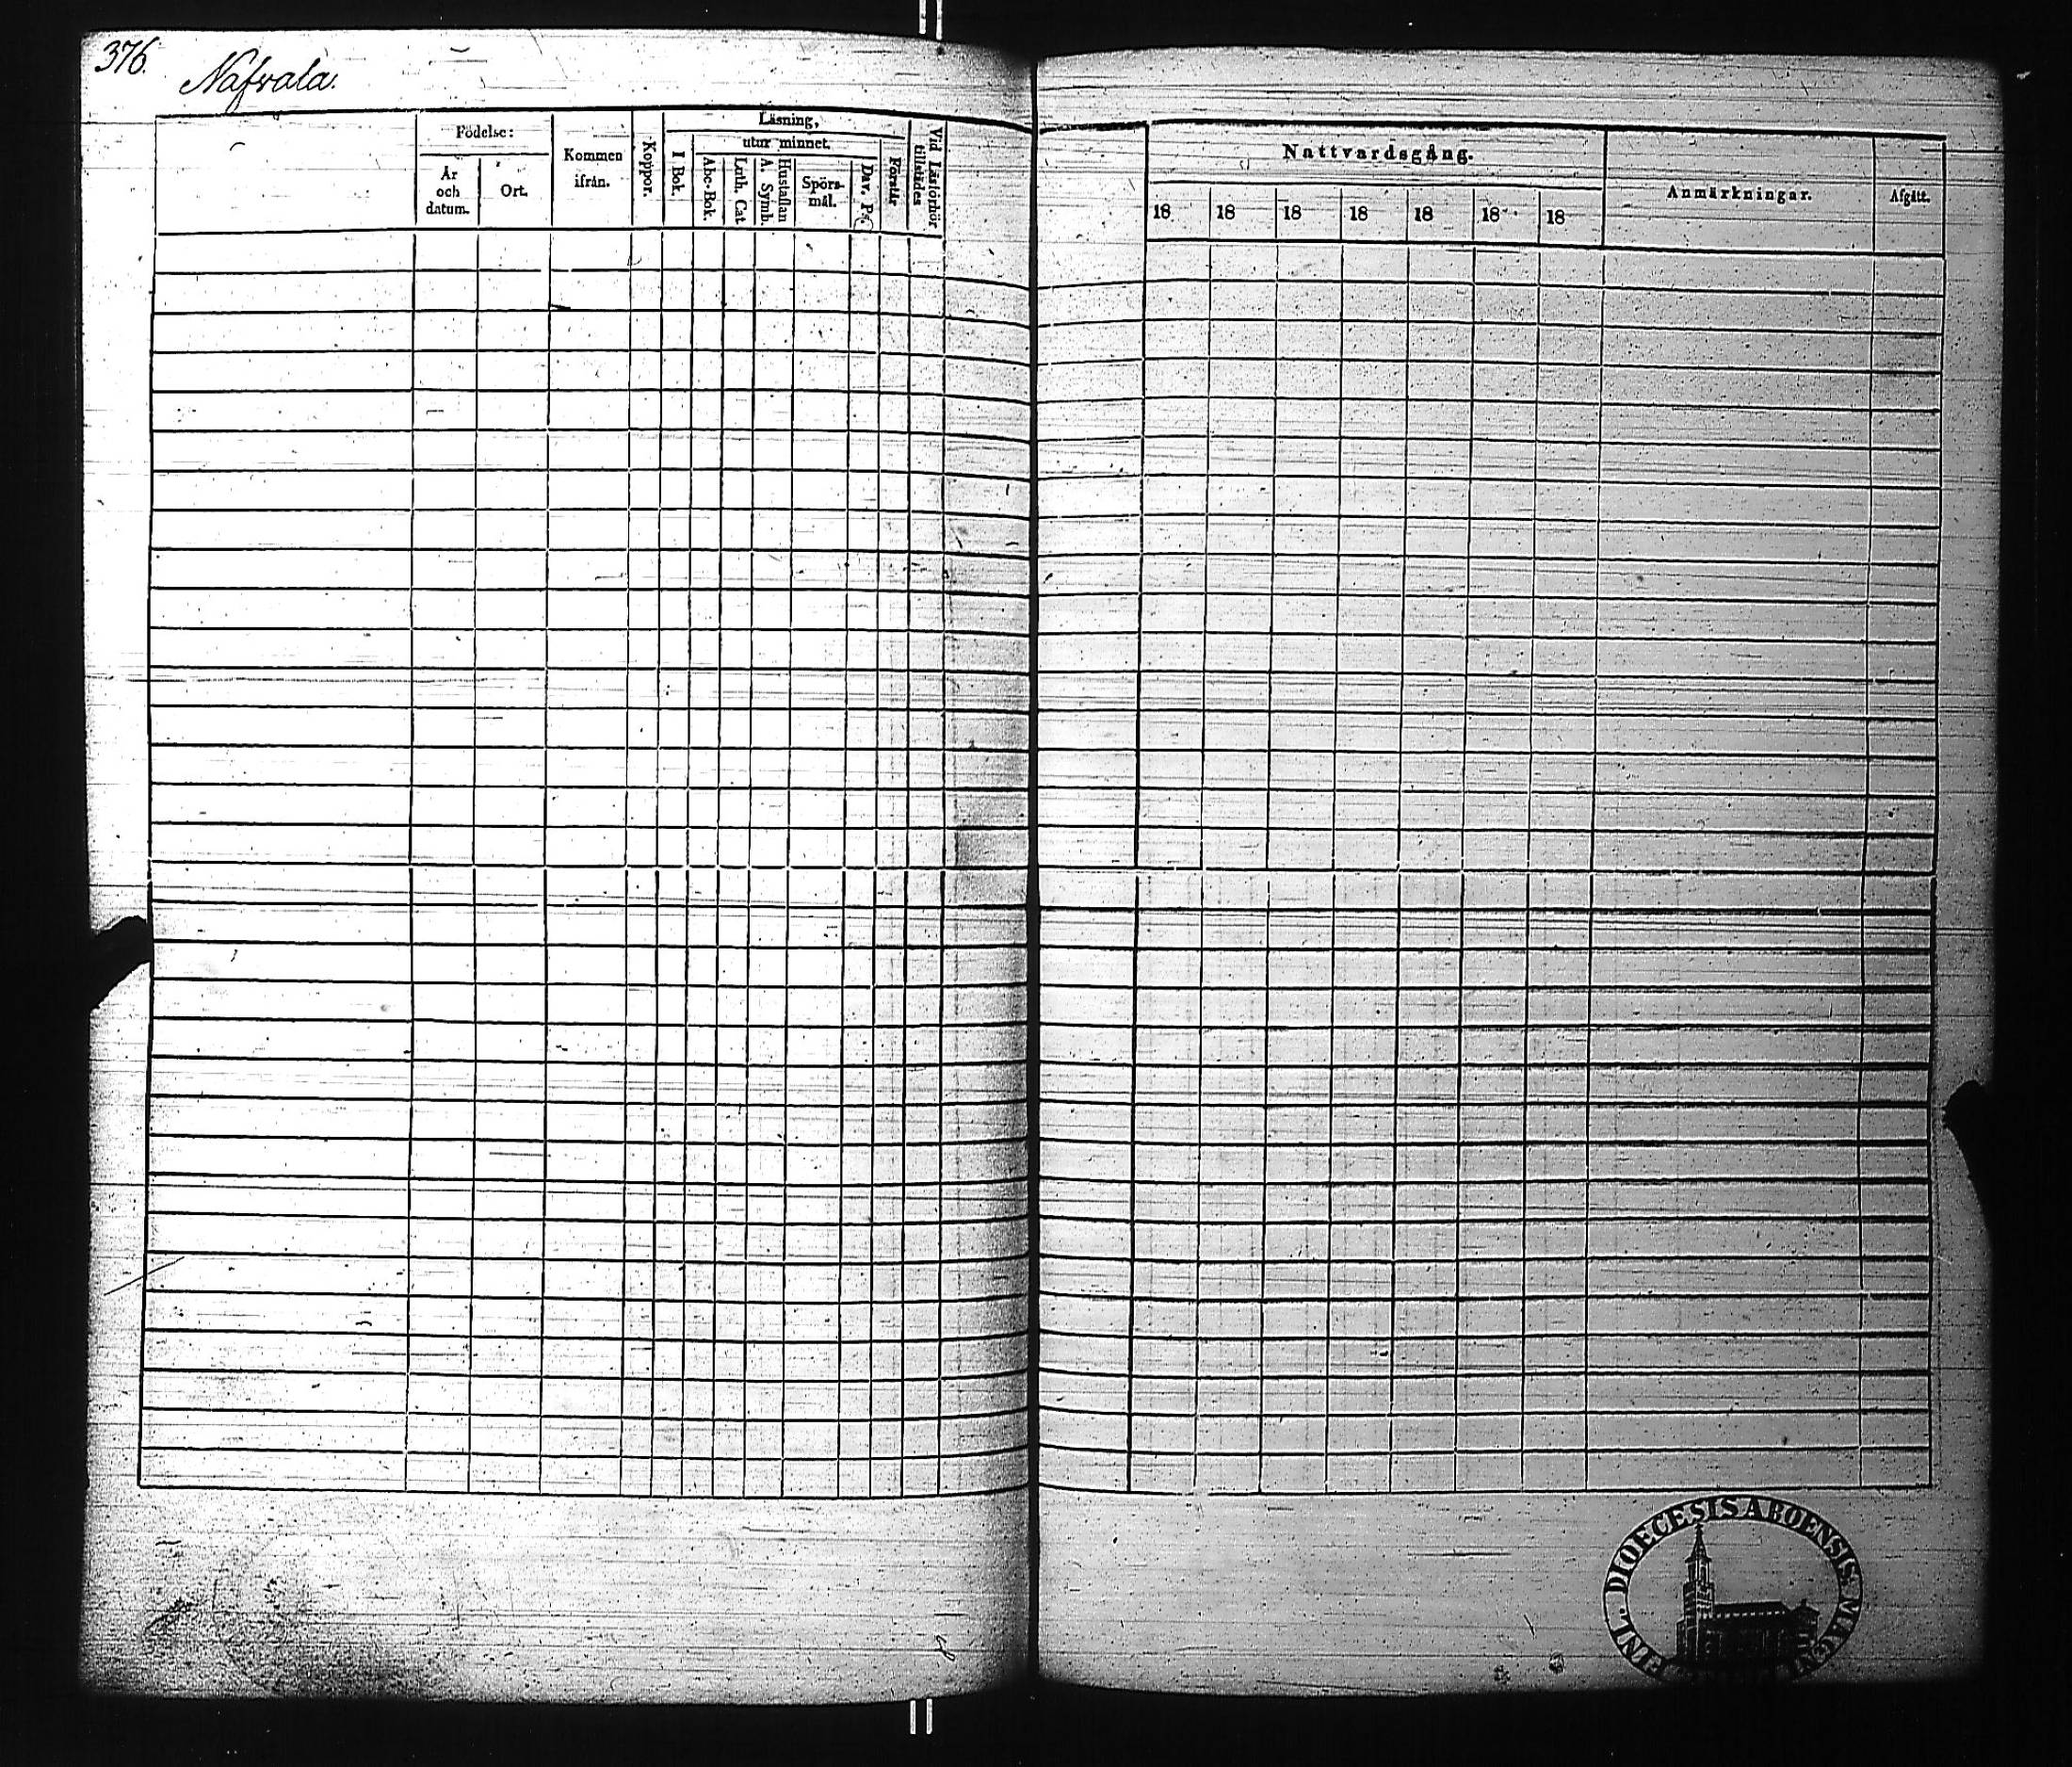 376.
Nafvala.
Födelse:
År
och
datum.
Ort.
Kommen
ifrån.
Koppor.
Läsning,
I Bok.
utur minnet.
Abc-Bok.
Luth. Cat
Hustaflan
A. Symb.
Spörs-
mål.
Dav. Ps.
Förstår
Vid Läsförhör
tillstädes
Nattvardsgång.
18 18 18 18 18 18 18
Anmärkningar.
Afgått.
DIOECESIS ABOENSIS